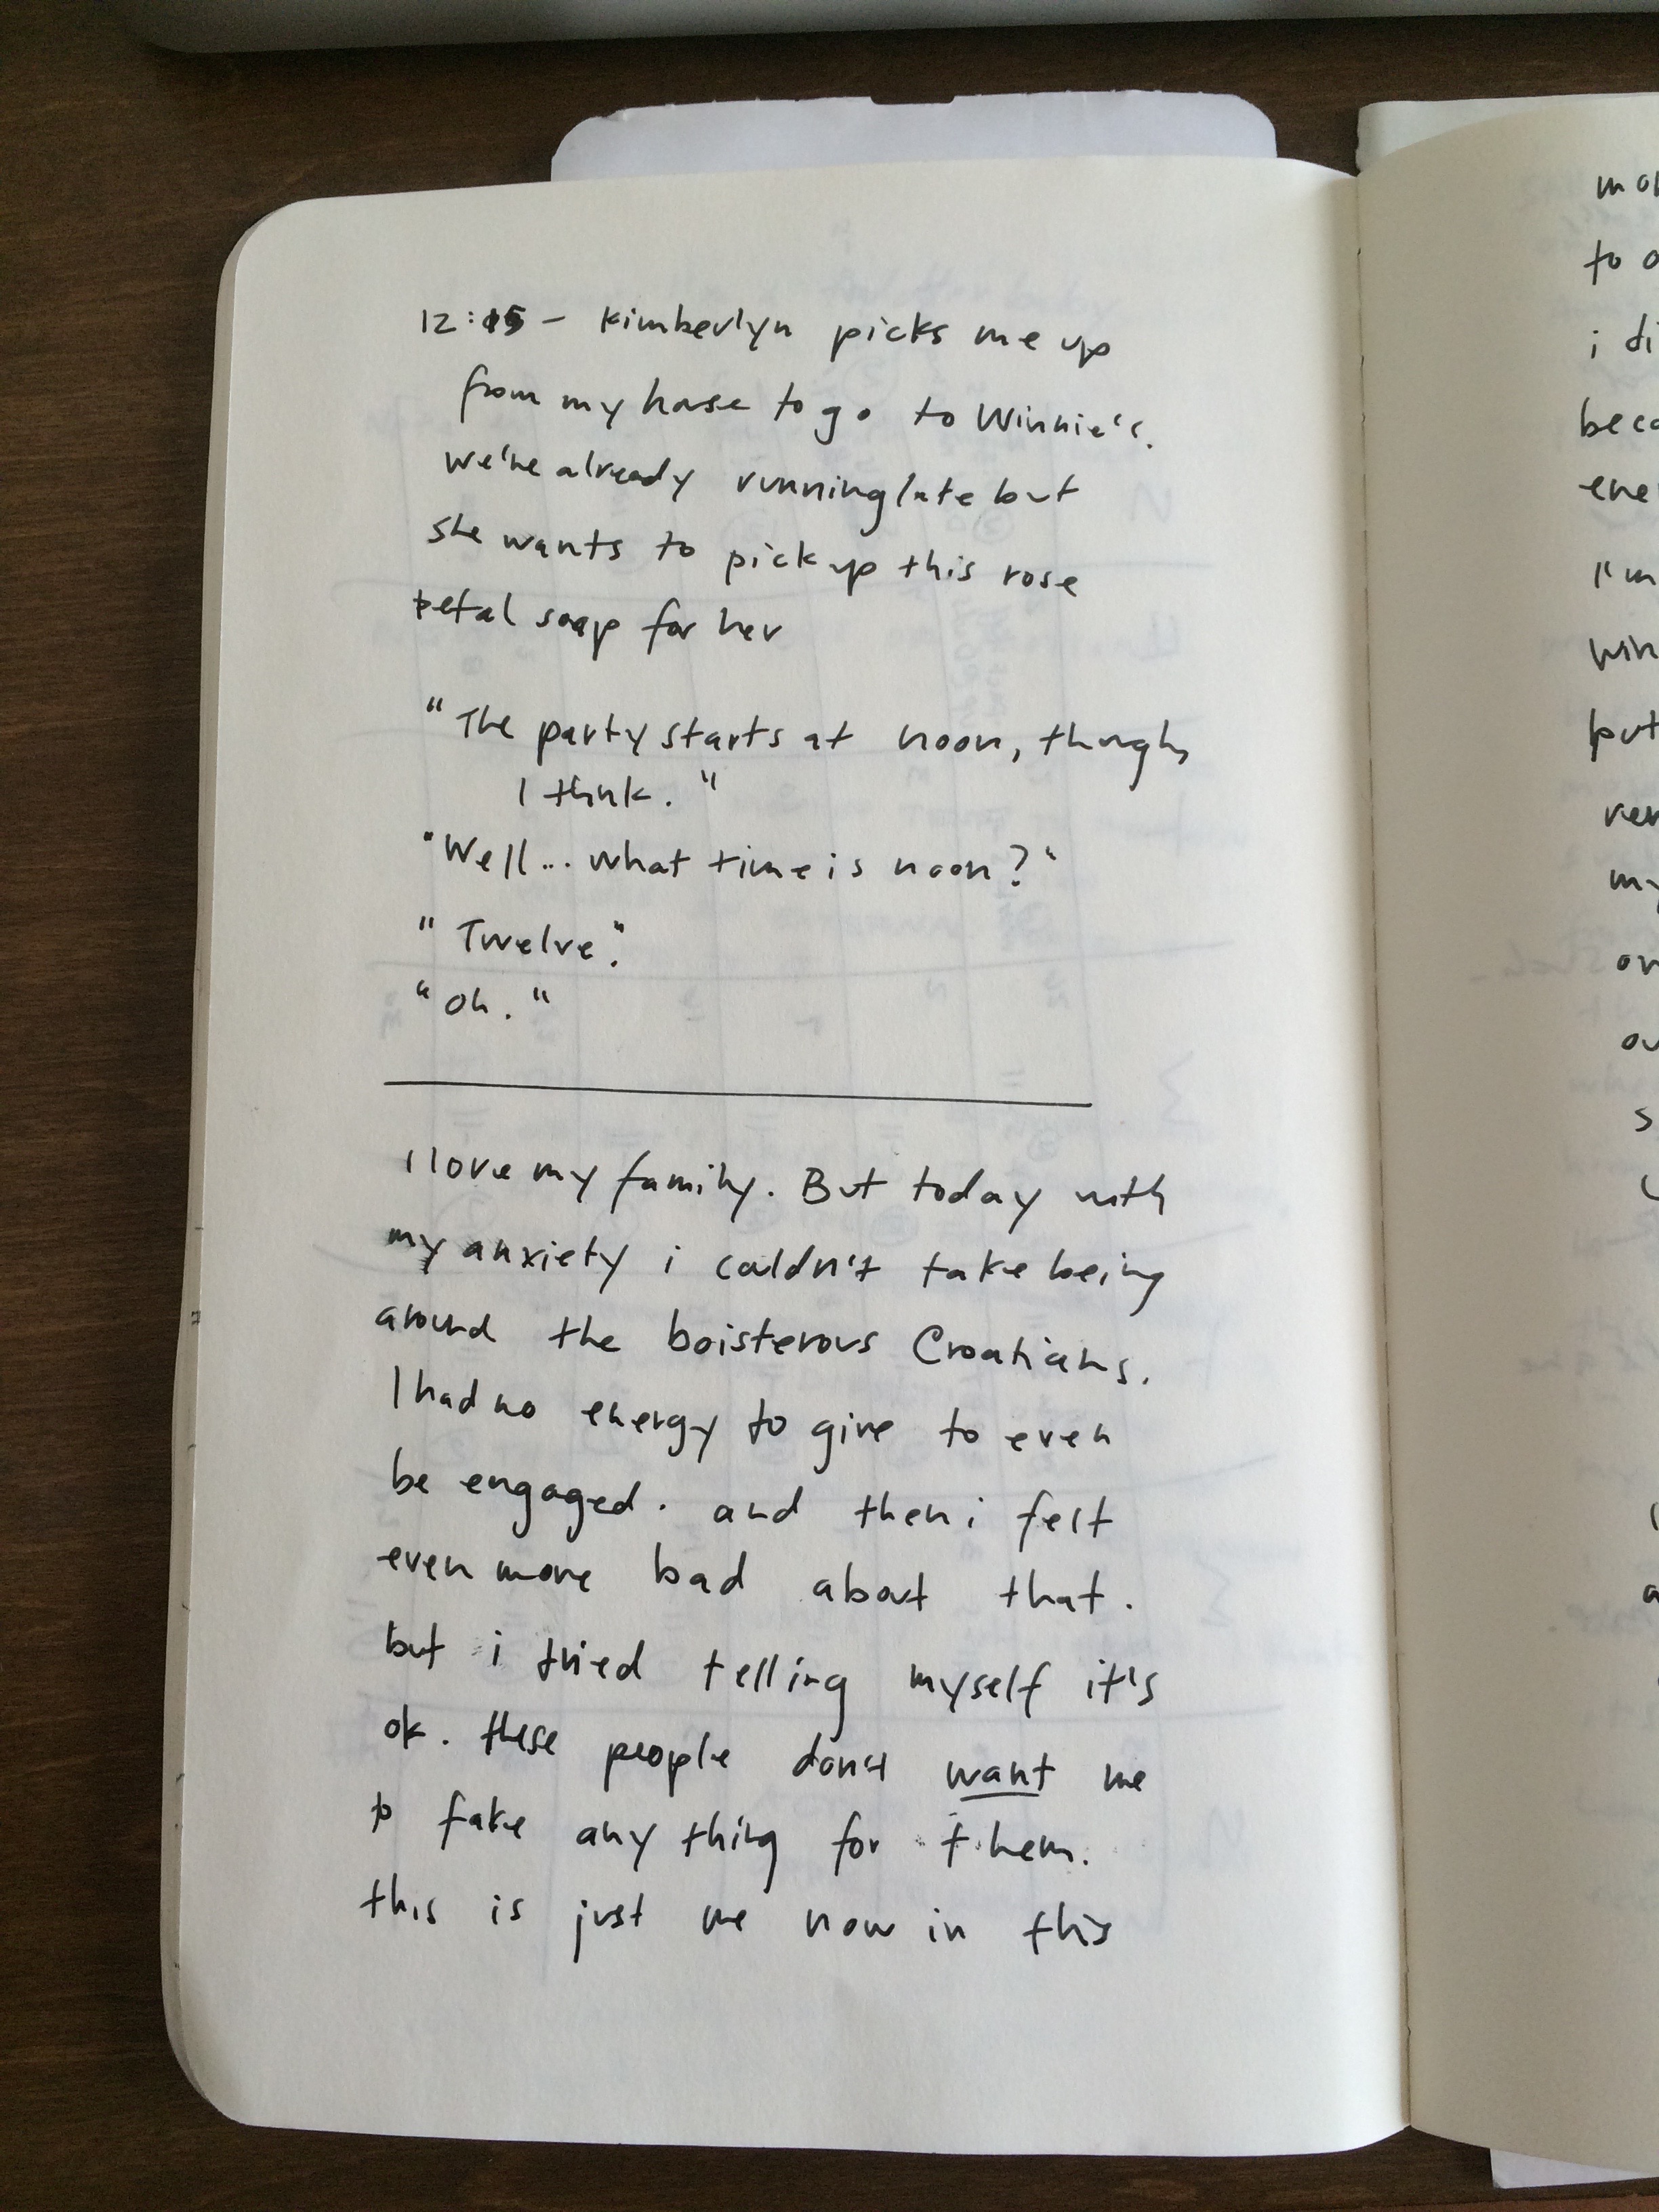 12:15 – Kimberlyn picks me up
from my house to go to Winnie's.
we're already running late but
she wants to pick up this rose
petal soap for her
"The party starts at noon, though,
I think."
"Well... what time is noon?"
"Twelve."
"Oh."
I love my family. But today with
my anxiety i couldn't take being
around the boisterous Croatians.
I had no energy to give to even
be engaged. and then i felt
even more bad about that.
but i tried telling myself it's
ok. these people don't want me
to fake anything for them.
this is just me now in this
mo
to
i di
beca
ene
I'm
win
put
my